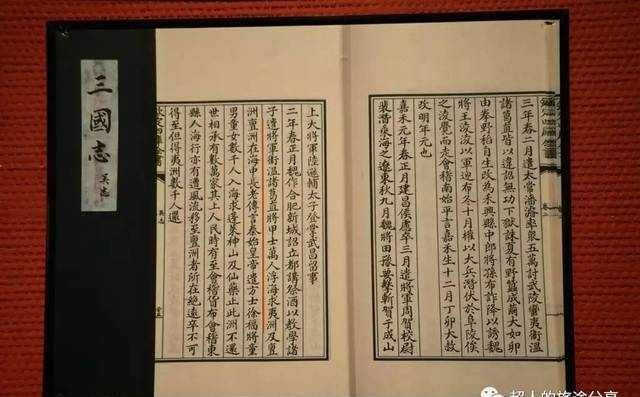 三國志
吴志
三年春二月遣太常潘濬率衆五萬討武陵蠻夷衛溫
諸葛直皆以違詔無功下獄誅夏有野蠶成繭大如卵
由拳野稻自生改為禾興縣中郎將孫布詐降以誘魏
將王淩淩以軍迎布冬十月權以大兵潛伏於阜陵俟
之淩覺而走會稽南始平言嘉禾生十二月丁卯大赦
改明年元也
嘉禾元年春正月建昌侯慮卒三月遣將軍周賀校尉
裴潛乘海之遼東秋九月魏將田豫要擊斬賀于成山
欽定四庫全書
吴志
上大將軍陸遜輔太子登掌武昌留事
二年春正月魏作合肥新城詔立都講祭酒以教學諸
子遣將軍衛溫諸葛直將甲士萬人浮海求夷洲及亶
洲亶洲在海中長老傳言秦始皇帝遣方士徐福將童
男童女數千人入海求蓬萊神山及仙藥止此洲不還
世相承有數萬家其上人民時有至會稽貨布會稽東
縣人海行亦有遭風流移至亶洲者所在絶遠卒不可
得至但得夷洲數千人還
超人的旅途分享